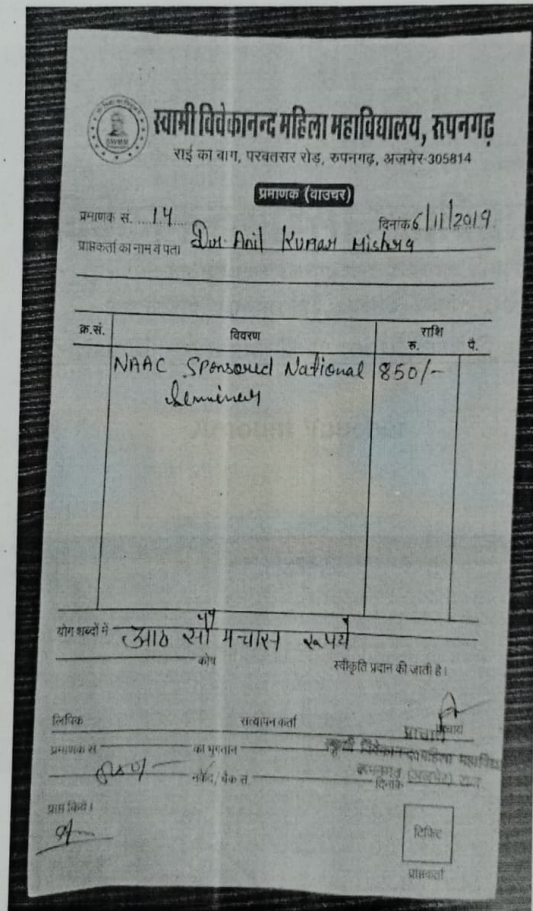 स्वामी विवेकानन्द महिला महाविद्यालय, रुपनगढ़
राई का बाग, परबतसर रोड, रुपनगढ़, अजमेर-305814
प्रमाणक (वाउचर)
प्रमाणक सं. 14 दिनांक 6/11/2019
प्राप्तकर्ता का नाम व पता Dr. Anil Kumar Mishra
क्र.सं. विवरण राशि
रु. पै.
NAAC Sponsored National 850/-
योग शब्दों में आठ सौ पचास रूपये
कोष स्वीकृति प्रदान की जाती है।
लिपिक सत्यापन कर्ता प्राचार्य
प्रमाणक सं का भुगतान
नकद, बैंक सं. दिनांक
प्राप्त किये।
टिकिट
प्राप्तकर्ता